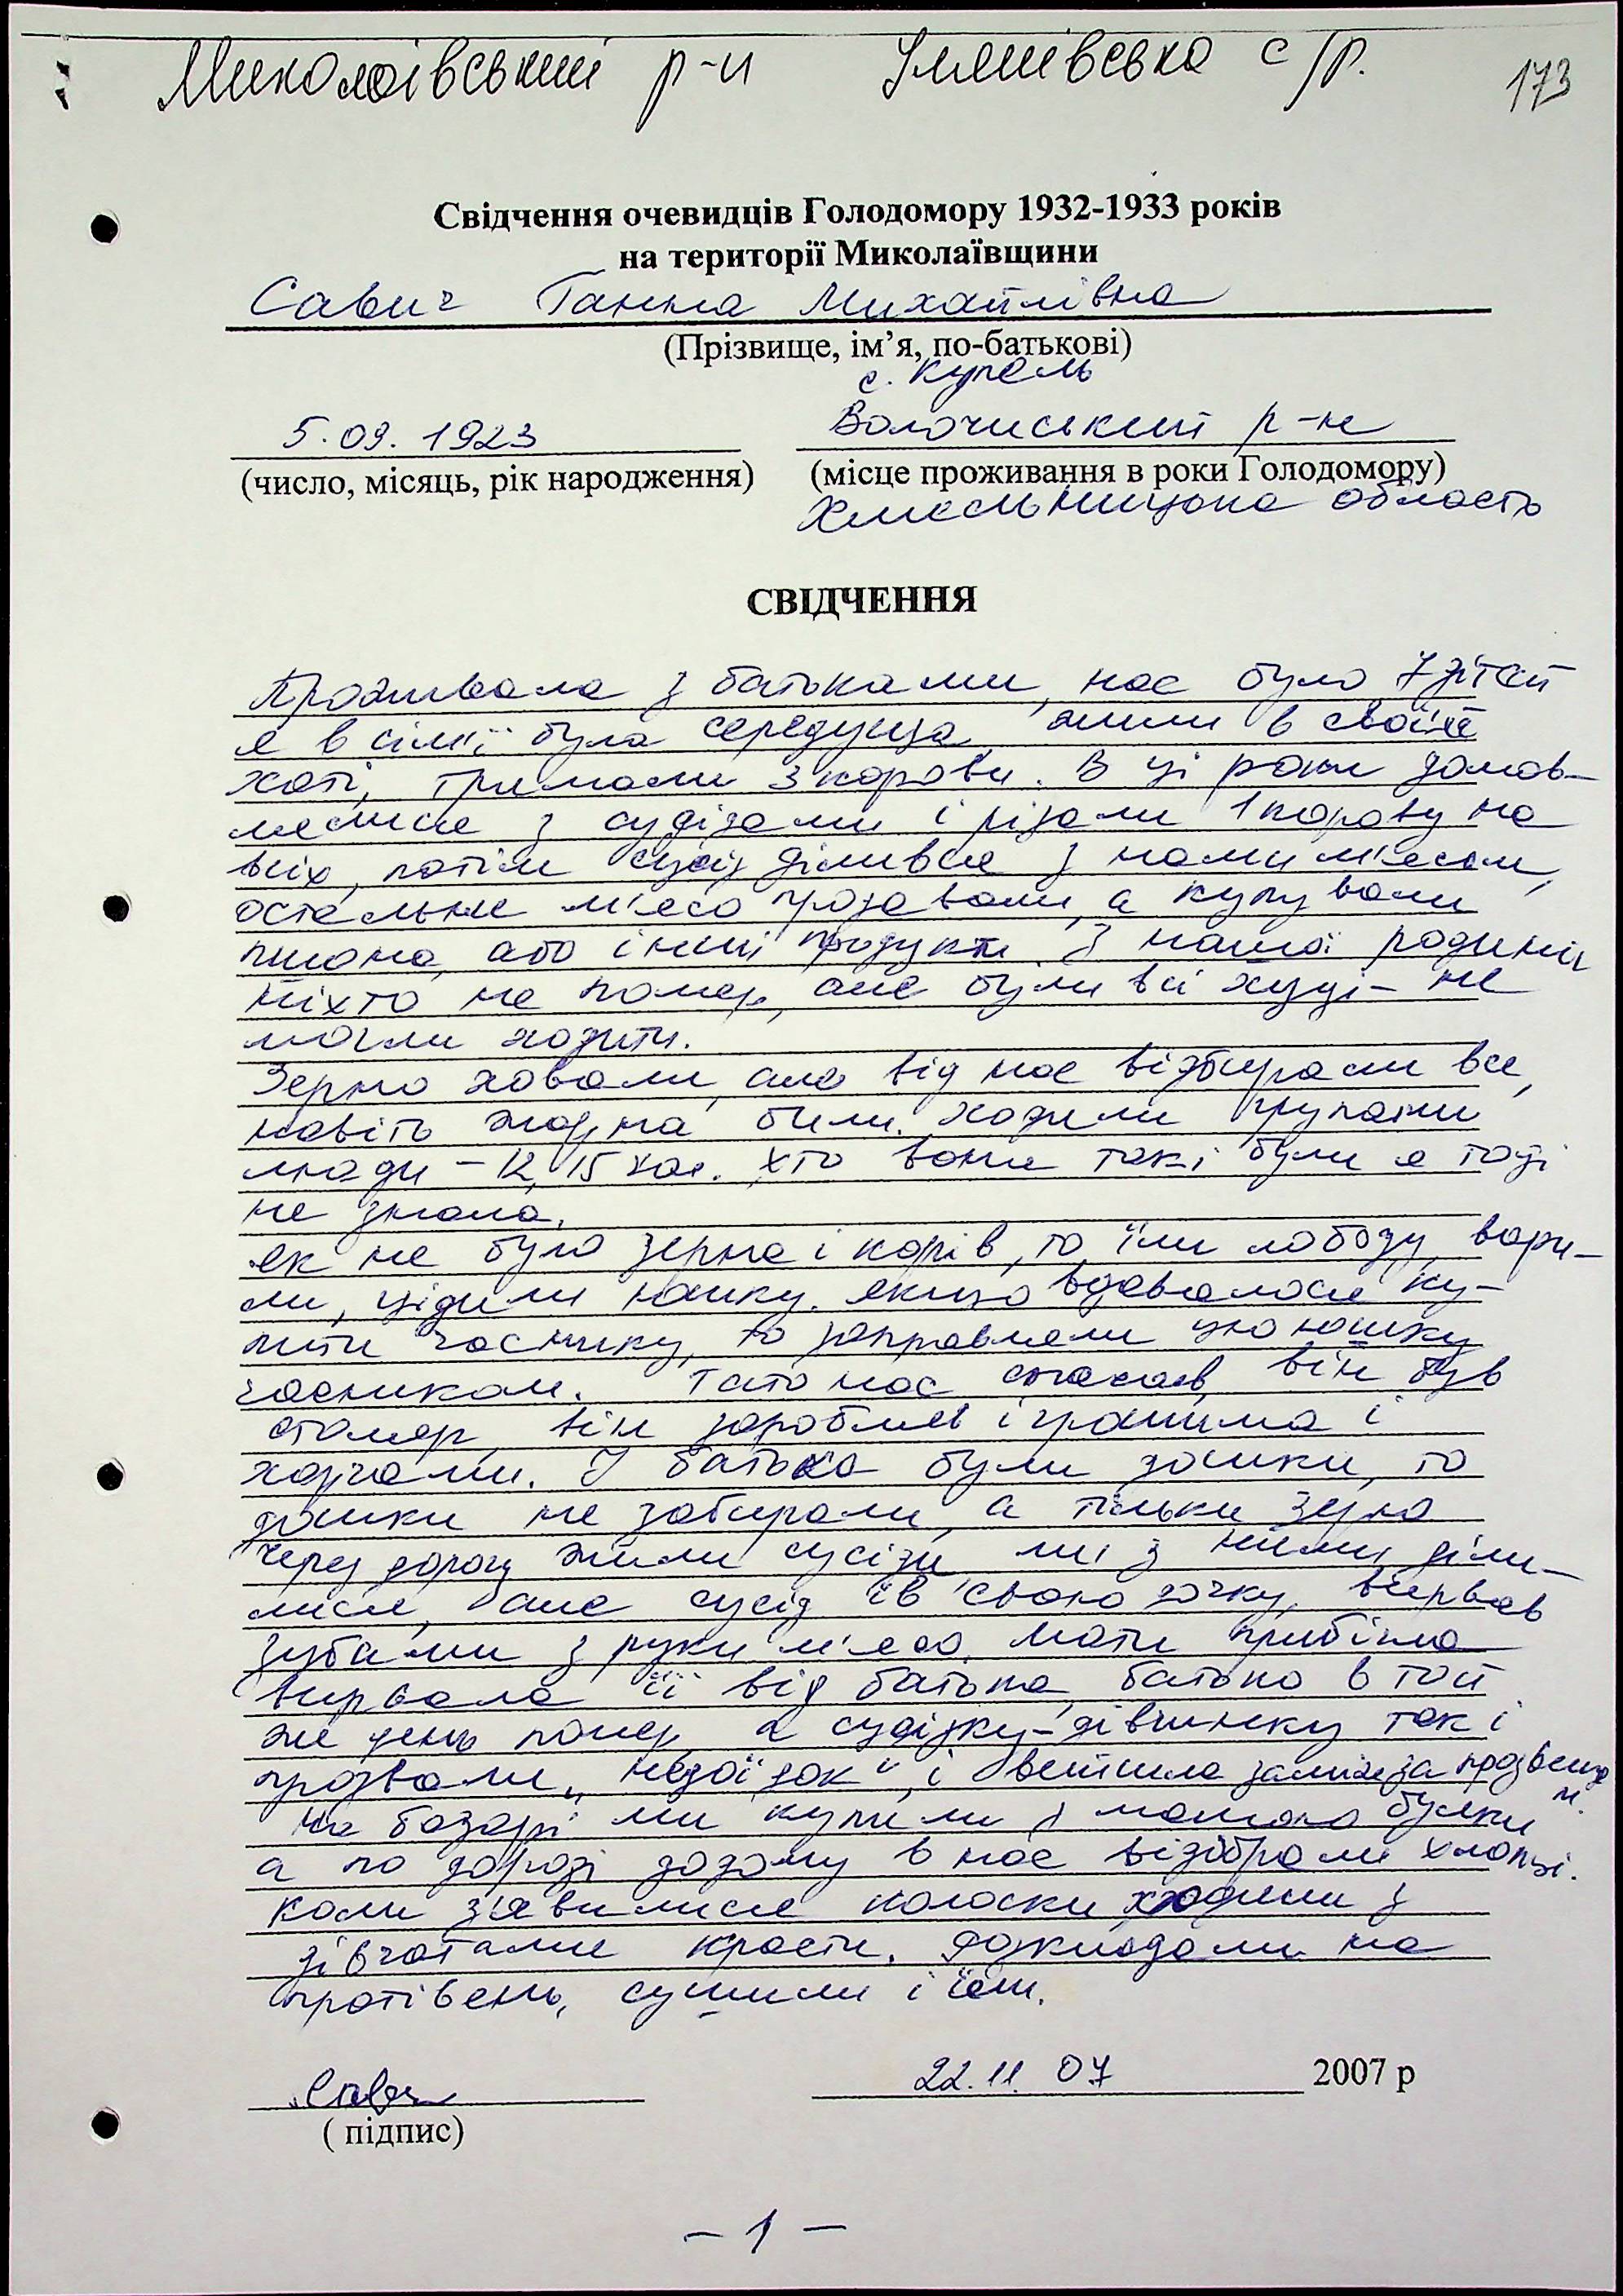 Миколаївський р-н Улянівська с/р. 173
Свідчення очевидців Голодомору 1932-1933 років
на території Миколаївщини
Савич Ганна Михайлівна
(Прізвище, ім’я, по-батькові)
с. Купель
5.09.1923 Волочиський р-н
(число, місяць, рік народження) (місце проживання в роки Голодомору)
Хмельницька область
СВІДЧЕННЯ
Проживала з батьками, нас було 7 дітей
я в сім'ї була середуща жили в своїй
хаті, тримали 3 корови. В ці роки домов-
лялися з сусідами і різали 1 корову на
всіх, потім сусід ділився з нами м'ясом,
остальне м'ясо продавали, а купували
пшоно, або інші продукти. З нашої родини
ніхто не помер, але були всі худі - не
могли ходити.
Зерно ховали, але від нас відбирали все,
навіть жорна били. Ходили групами
люди - 12, 15 чол. Хто вони такі були я тоді
не знала.
Як не було зерна і корів, то їли лободу, вари-
ли, цідили юшку. Якщо вдавалося ку-
пити часнику, то заправляли цю юшку
часником. Тато нас спасав, він був
столяр, він заробляв і грошима і
харчами. У батька були дошки, то
дошки не забирали, а тільки зерно
Через дорогу жили сусіди, ми з ними діли-
лися, але сусід їв свою дочку, вирвав
зубами з руки м'ясо. Мати прибігла
вирвала її від батька, батько в той
же день помер, а сусідку-дівчинку так і
прозвали „недоїдок“, і вийшла заміж за прозвищем.
На базарі ми купили з мамою булки
а по дорозі додому в нас відібрали хлопці.
Коли з'явилися колоски ходили з
дівчатами красти. Докладали на
протівень, сушили і їли.
22.11.07 2007 р
( підпис)
- 1 -